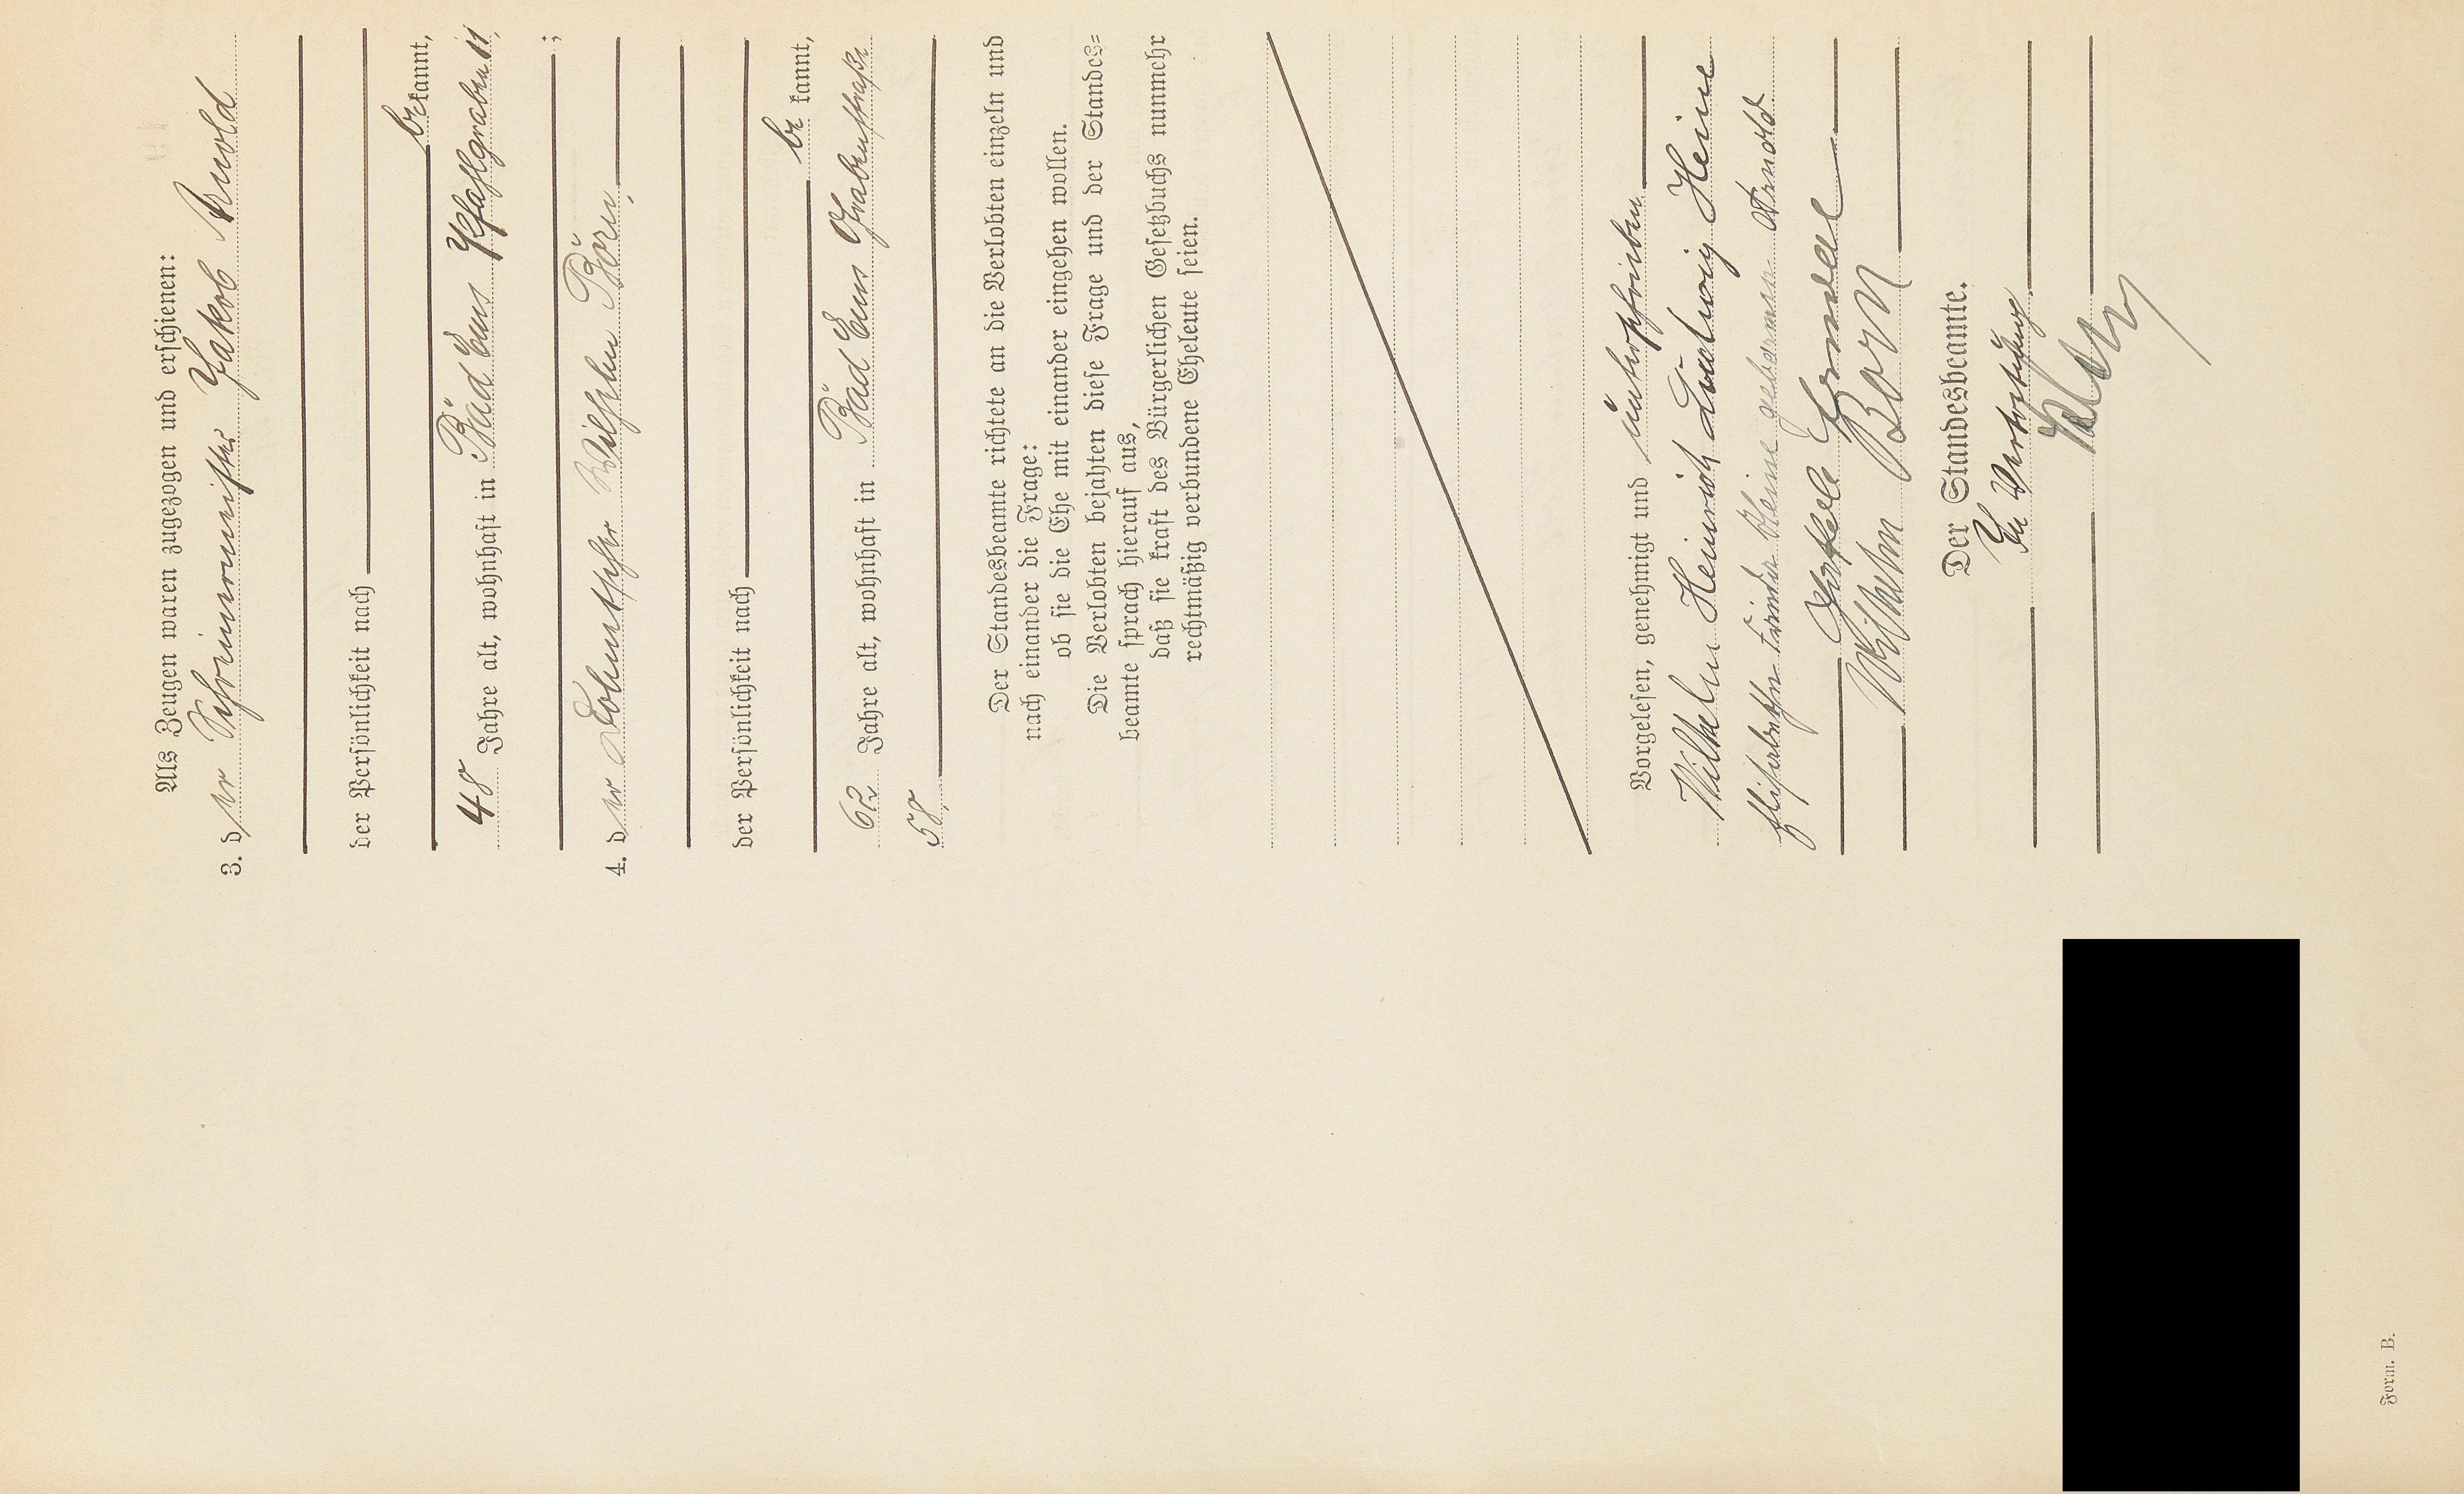 Als Zeugen waren zugezogen und erschienen:
3. der Schreinermeister Jakob Arnold
der Persönlichkeit nach
bekannt,
48 Jahre alt, wohnhaft in Bad Ems Pfahlgraben 11,
;
4. der Lohnkutscher Wilhelm Born,
der Persönlichkeit nach
be kannt,
62 Jahre alt, wohnhaft in Bad Ems Grabenstraße
58,
Der Standesbeamte richtete an die Verlobten einzeln und
nach einander die Frage:
ob sie die Ehe mit einander eingehen wollen.
Die Verlobten bejahten diese Frage und der Standes=
beamte sprach hierauf aus,
daß sie kraft des Bürgerlichen Gesetzbuchs nunmehr
rechtmäßig verbundene Eheleute seien.
Vorgelesen, genehmigt und unterschrieben
Wilhelm Heinrich Ludwig Heine
Heine geborene Arnold
Wilhelm Born
Der Standesbeamte.
In Vertretung
Form. B.